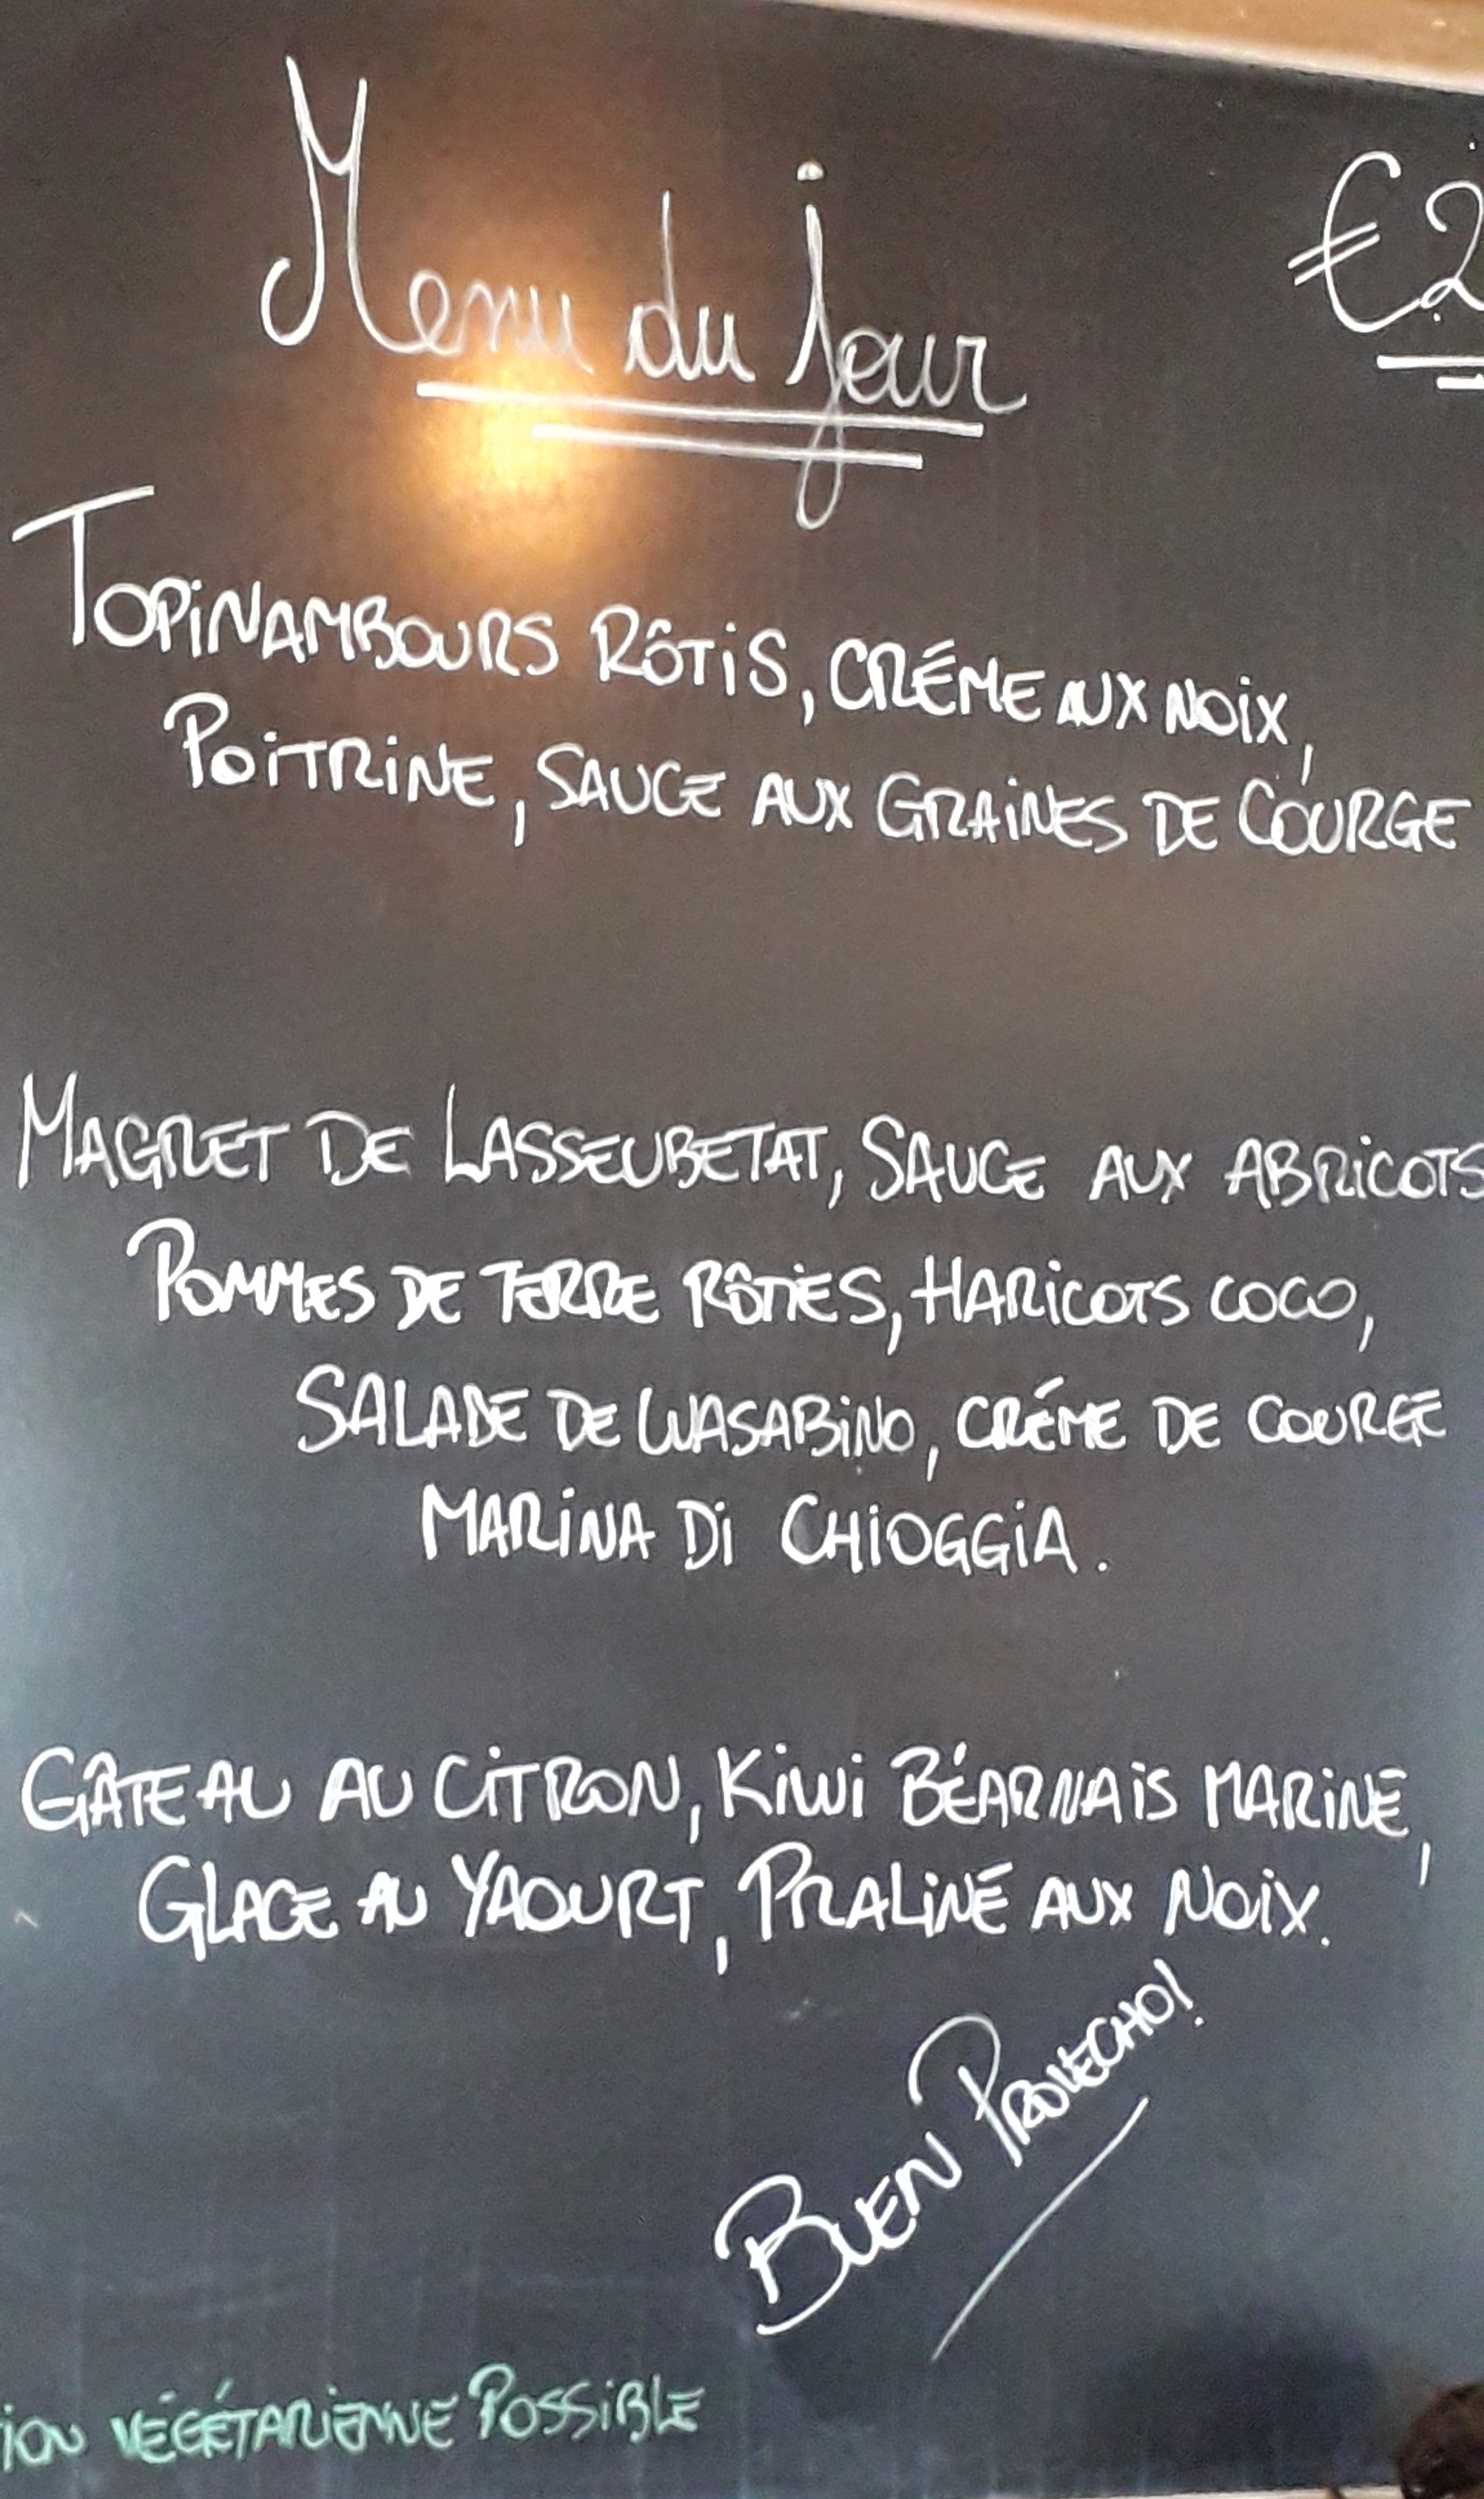 Menu du jour
€2
TOPINAMBOURS RÔTIS, CRÉME AUX NOIX,
POITRINE, SAUCE AUX GRAINES DE COURGE
MAGRET DE LASSEUBETAT, SAUCE AUX ABRICOTS
POMMES DE TERRE RÔTIES, HARICOTS COCO,
SALADE DE WASABINO, CRÉME DE COURGE
MARINA DI CHIOGGIA.
GÂTEAU AU CITRON, KIWI BÉARNAIS MARINÉ,
GLACE AU YAOURT, PRALINÉ AUX NOIX.
BUEN PROVECHO!
ION VÉGÉTARIENNE POSSIBLE